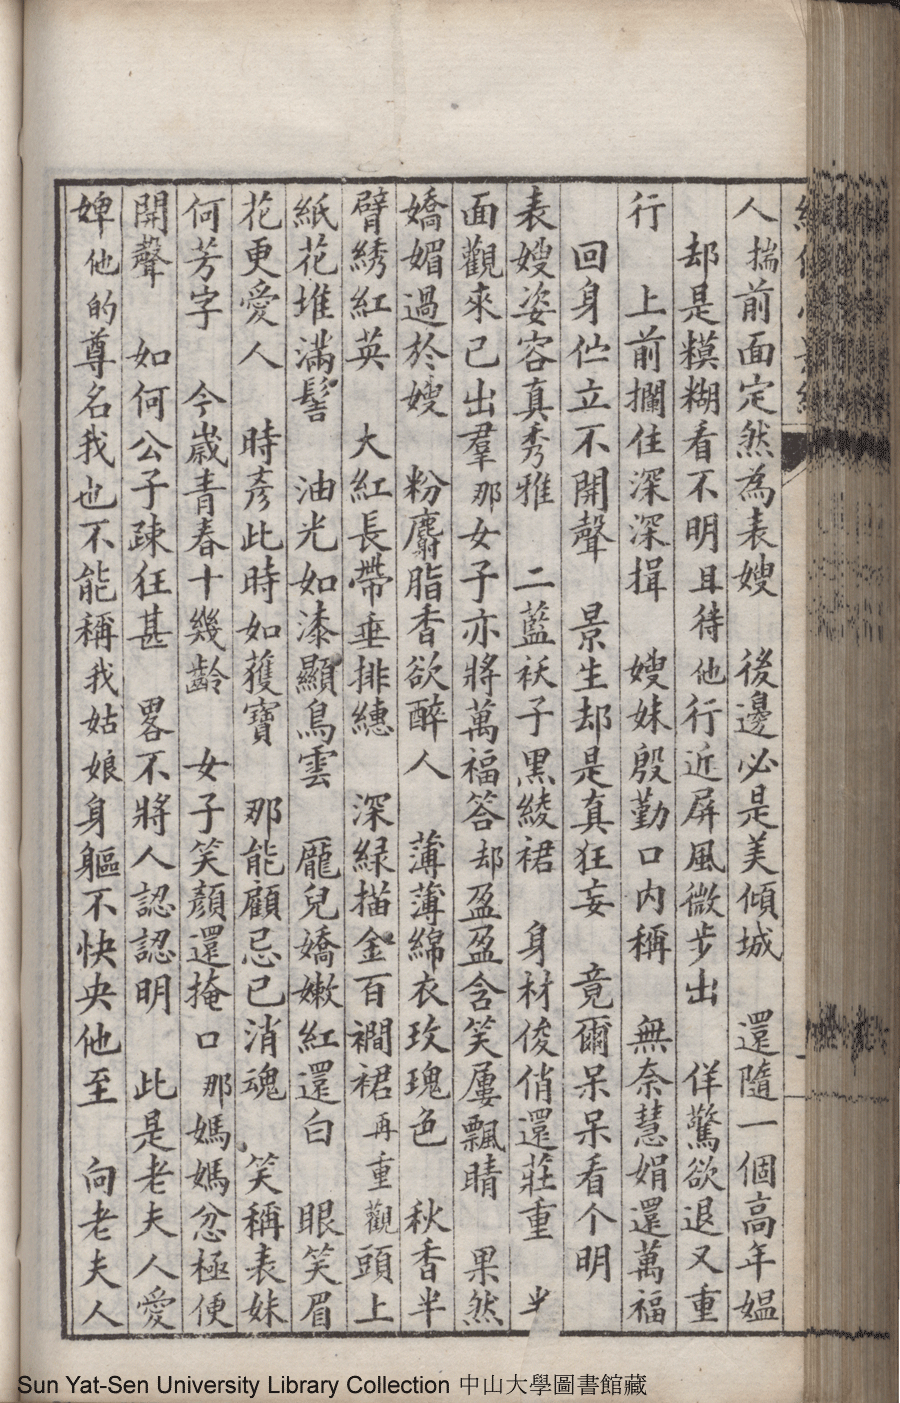 人揣前面定然為表嫂　後邊必是美傾城　還隨一個高年媪
却是糢糊看不明且待他行近屏風微步出　佯驚欲退又重
行　上前攔住深深揖　嫂妹殷勤口内稱　無奈慧娟還萬福
回身伫立不開聲　景生却是真狂妄　竟爾呆呆看个明
表嫂姿容真秀雅　二藍袄子黑綾裙　身材俊俏還莊重　半
面觀來已出羣那女子亦將萬福答却盈盈含笑屢飄睛　果然
嬌媚過於嫂　粉麝脂香欲醉人　薄薄綿衣玫瑰色　秋香半
臂綉紅英　大紅長帶垂排繐　深緑描金百襉裙再重觀頭上
紙花堆滿髻　油光如漆顯烏雲　龐兒嬌嫩紅還白　眼笑眉
花更愛人　時彥此時如獲寶　那能顧忌已消魂　笑稱表妹
何芳字　今歲青春十幾齡　女子笑顏還掩口那媽媽忿極便
開聲　如何公子疎狂甚　畧不將人認認明　此是老夫人愛
婢他的尊名我也不能稱我姑娘身軀不快央他至　向老夫人
Sun Yat-Sen University Library Collection 中山大學圖書館藏